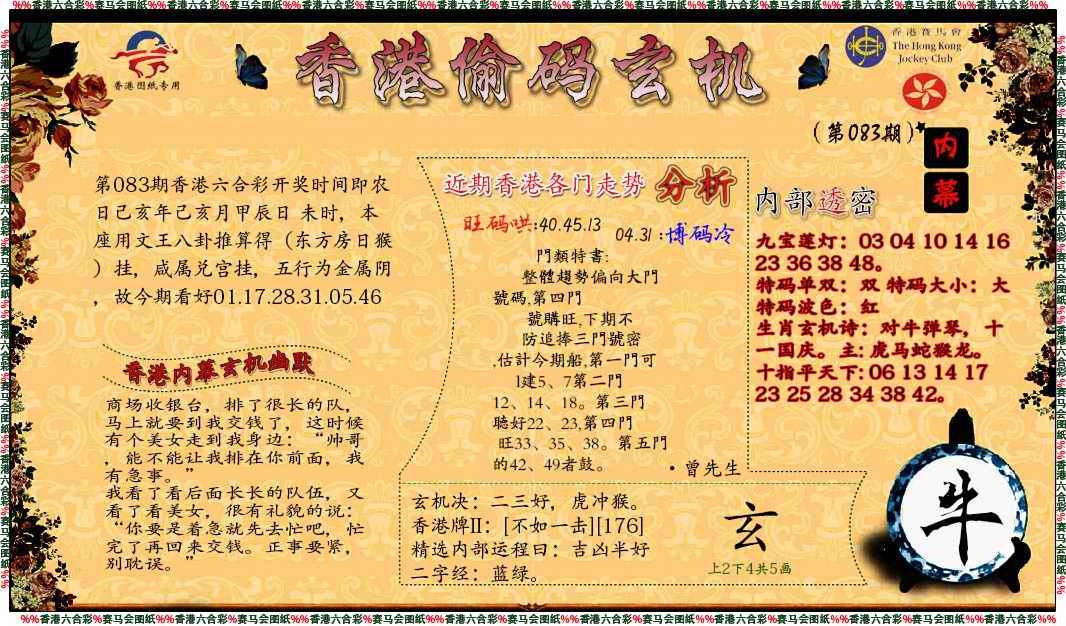 %%香港六合彩%赛马会图纸%%香港六合彩%赛马会图纸%%香港六合彩%赛马会图纸%%香港六合彩%赛马会图纸%%香港六合彩%赛马会图纸%%香港六合彩%赛马会图纸%%
香港图纸专用
香港偷码玄机
香港賽馬會
The Hong Kong
Jockey Club
(第083期)
内
幕
第083期香港六合彩开奖时间即农
日己亥年己亥月甲辰日 未时，本
座用文王八卦推算得（东方房日猴
）挂，咸属兑宫挂，五行为金属阴
，故今期看好01.17.28.31.05.46
香港内幕玄机幽默
商场收银台，排了很长的队，
马上就要到我交钱了，这时候
有个美女走到我身边：“帅哥
，能不能让我排在你前面，我
有急事。”
我看了看后面长长的队伍，又
看了看美女，很有礼貌的说：
“你要是着急就先去忙吧，忙
完了再回来交钱。正事要紧，
别耽误。”
近期香港各门走势 分析
旺码哄:40.45.13
04.31 :博码冷
門類特書:
整體趨勢偏向大門
號碼,第四門
號購旺,下期不
防追捧三門號密
,估計今期船,第一門可
1建5、7第二門
12、14、18。第三門
聽好22、23,第四門
旺33、35、38。第五門
的42、49者鼓。
•曾先生
玄机决：二三好，虎冲猴。
香港牌II：[不如一击][176]
精选内部运程曰：吉凶半好
二字经：蓝绿。
玄
上2下4共5画
内部透密
九宝莲灯：03 04 10 14 16
23 36 38 48。
特码单双：双 特码大小：大
特码波色：红
生肖玄机诗：对牛弹琴，十
一国庆。主: 虎马蛇猴龙。
十指平天下: 06 13 14 17
23 25 28 34 38 42。
牛
%%香港六合彩%赛马会图纸%%香港六合彩%赛马会图纸%%香港六合彩%赛马会图纸%%香港六合彩%赛马会图纸%%香港六合彩%赛马会图纸%%香港六合彩%赛马会图纸%%